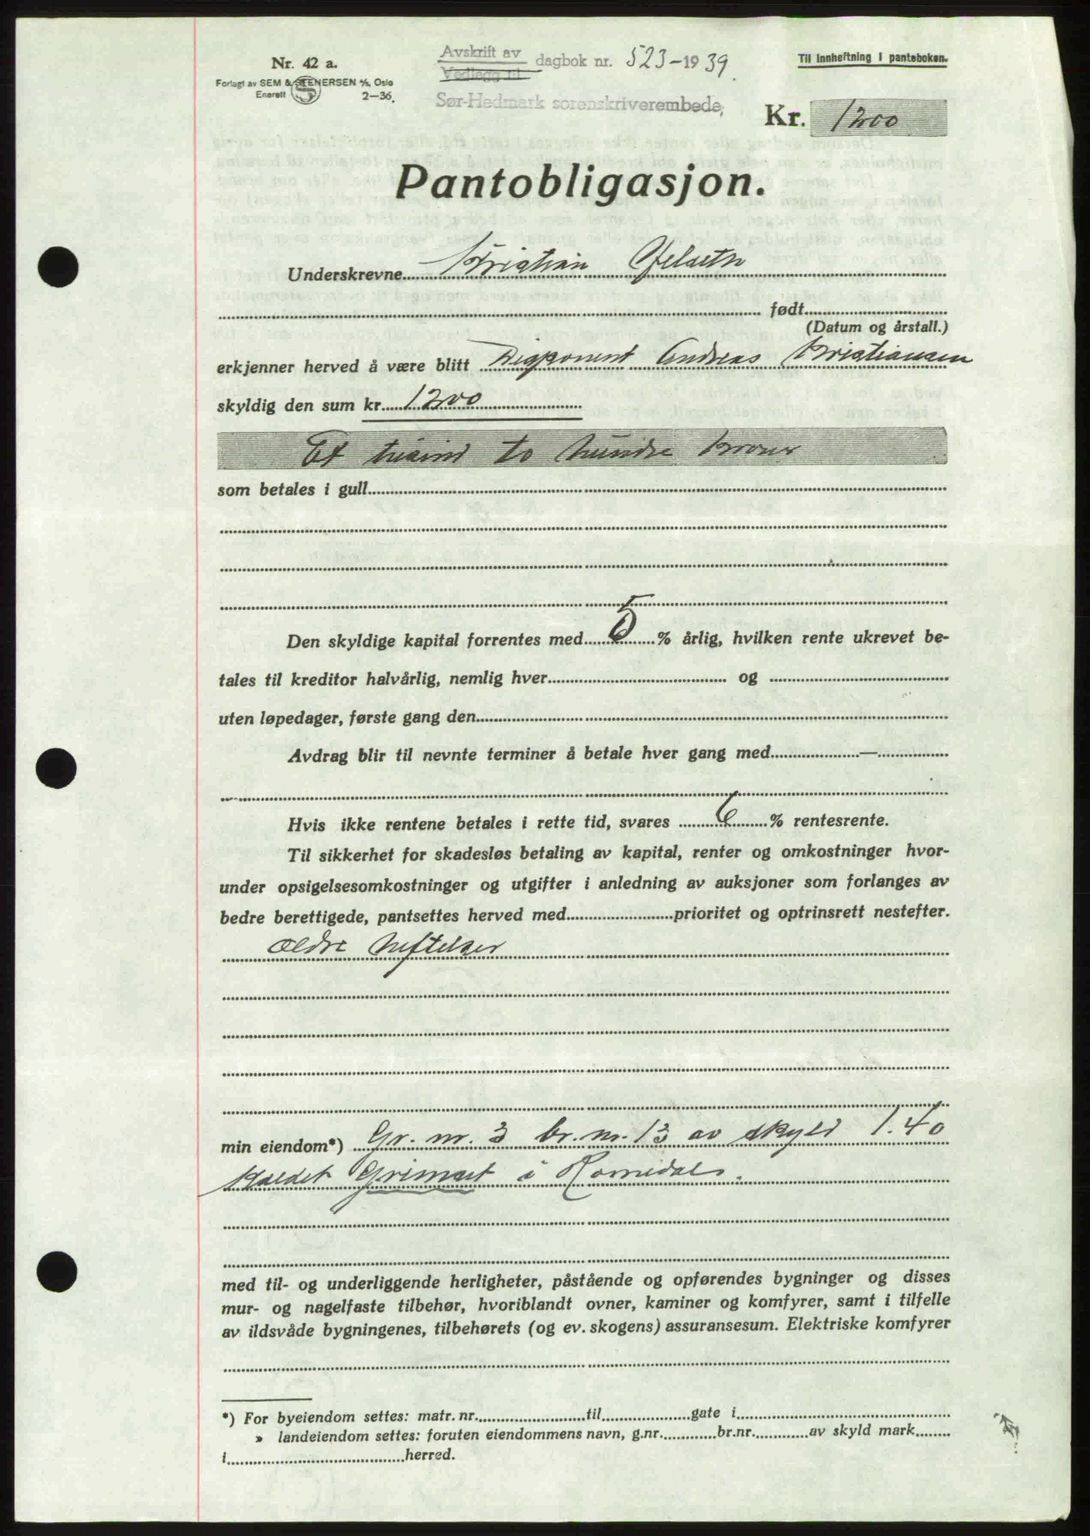 Nr. 42 a.
Forlagt av SEM & STENERSEN A/S, Oslo
Enerett S 2-36.
Avskrift av
Vedlegg til
dagbok nr. 523-1939.
Sør-Hedmark sorenskriverembede,
Til innheftning i panteboken.
Kr. 1200
Pantobligasjon.
Underskrevne Kristian
født
(Datum og årstall.)
erkjenner herved å være blitt Disponent Andreas Kristiansen
skyldig den sum kr. 1200
Et tusind to hundre kroner
som betales i gull
Den skyldige kapital forrentes med 5 % årlig, hvilken rente ukrevet be-
tales til kreditor halvårlig, nemlig hver og
uten løpedager, første gang den
Avdrag blir til nevnte terminer å betale hver gang med —
Hvis ikke rentene betales i rette tid, svares 6 % rentesrente.
Til sikkerhet for skadesløs betaling av kapital, renter og omkostninger hvor-
under opsigelsesomkostninger og utgifter i anledning av auksjoner som forlanges av
bedre berettigede, pantsettes herved med prioritet og optrinsrett nestefter.
ældre heftelser
min eiendom*) Gr. nr. 3 br. nr. 13 av skyld 1.40
kaldet i Romedal.
med til- og underliggende herligheter, påstående og opførendes bygninger og disses
mur- og nagelfaste tilbehør, hvoriblandt ovner, kaminer og komfyrer, samt i tilfelle
av ildsvåde bygningenes, tilbehørets (og ev. skogens) assuransesum. Elektriske komfyrer
*) For byeiendom settes: matr. nr. til gate i
» landeiendom settes: foruten eiendommens navn, g.nr. br.nr. av skyld mark
i herred.